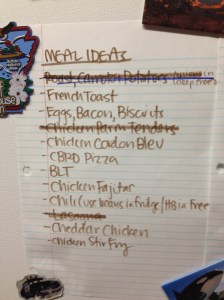 MEAL IDEAS
Roast, Carrots & Potatoes
- French Toast
- Eggs, Bacon, Biscuits
- Chicken Parm Tenders
- Chicken Cordon Bleu
- CBRD Pizza
- BLT
- Chicken Fajitas
- Chili (use beans in fridge/HB in Free
- Lasagna
- Cheddar Chicken
- Chicken Stir Fry